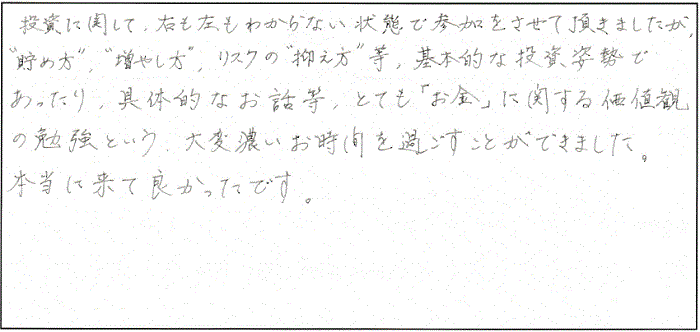 投資に関して、右も左もわからない状態で参加をさせて頂きましたが、
"貯め方"、"増やし方"、リスクの"抑え方"等、基本的な投資姿勢で
あったり、具体的なお話等、とても「お金」に関する価値観
の勉強という、大変濃いお時間を過ごすことができました。
本当に来て良かったです。